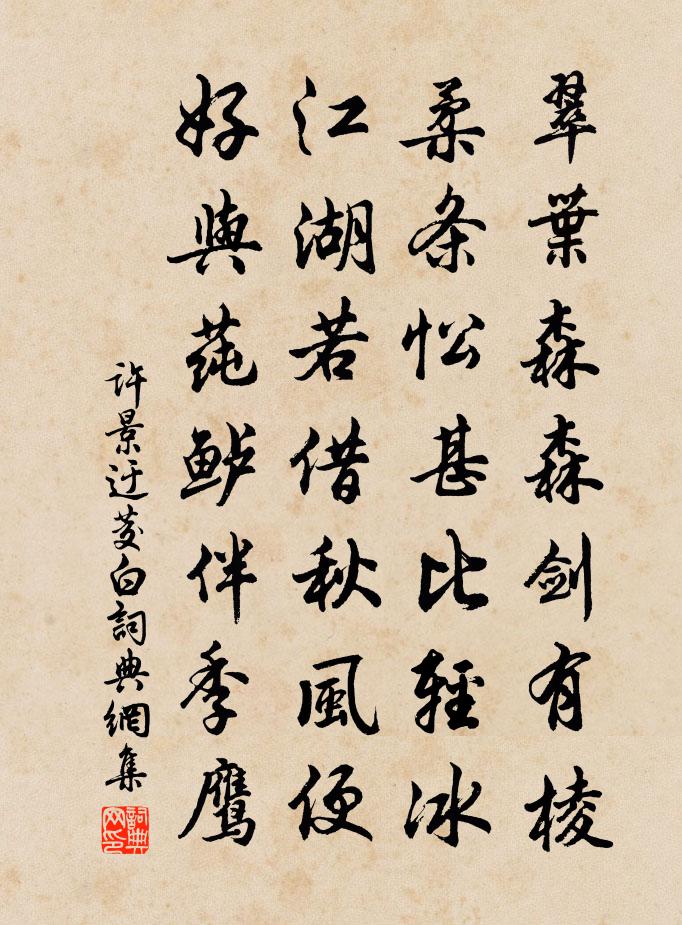 翠葉森森剑有棱
柔条忪甚比輕冰
江湖若借秋風便
好與莼鲈伴季鹰
許景迂茭白詞典網集
詞典网印